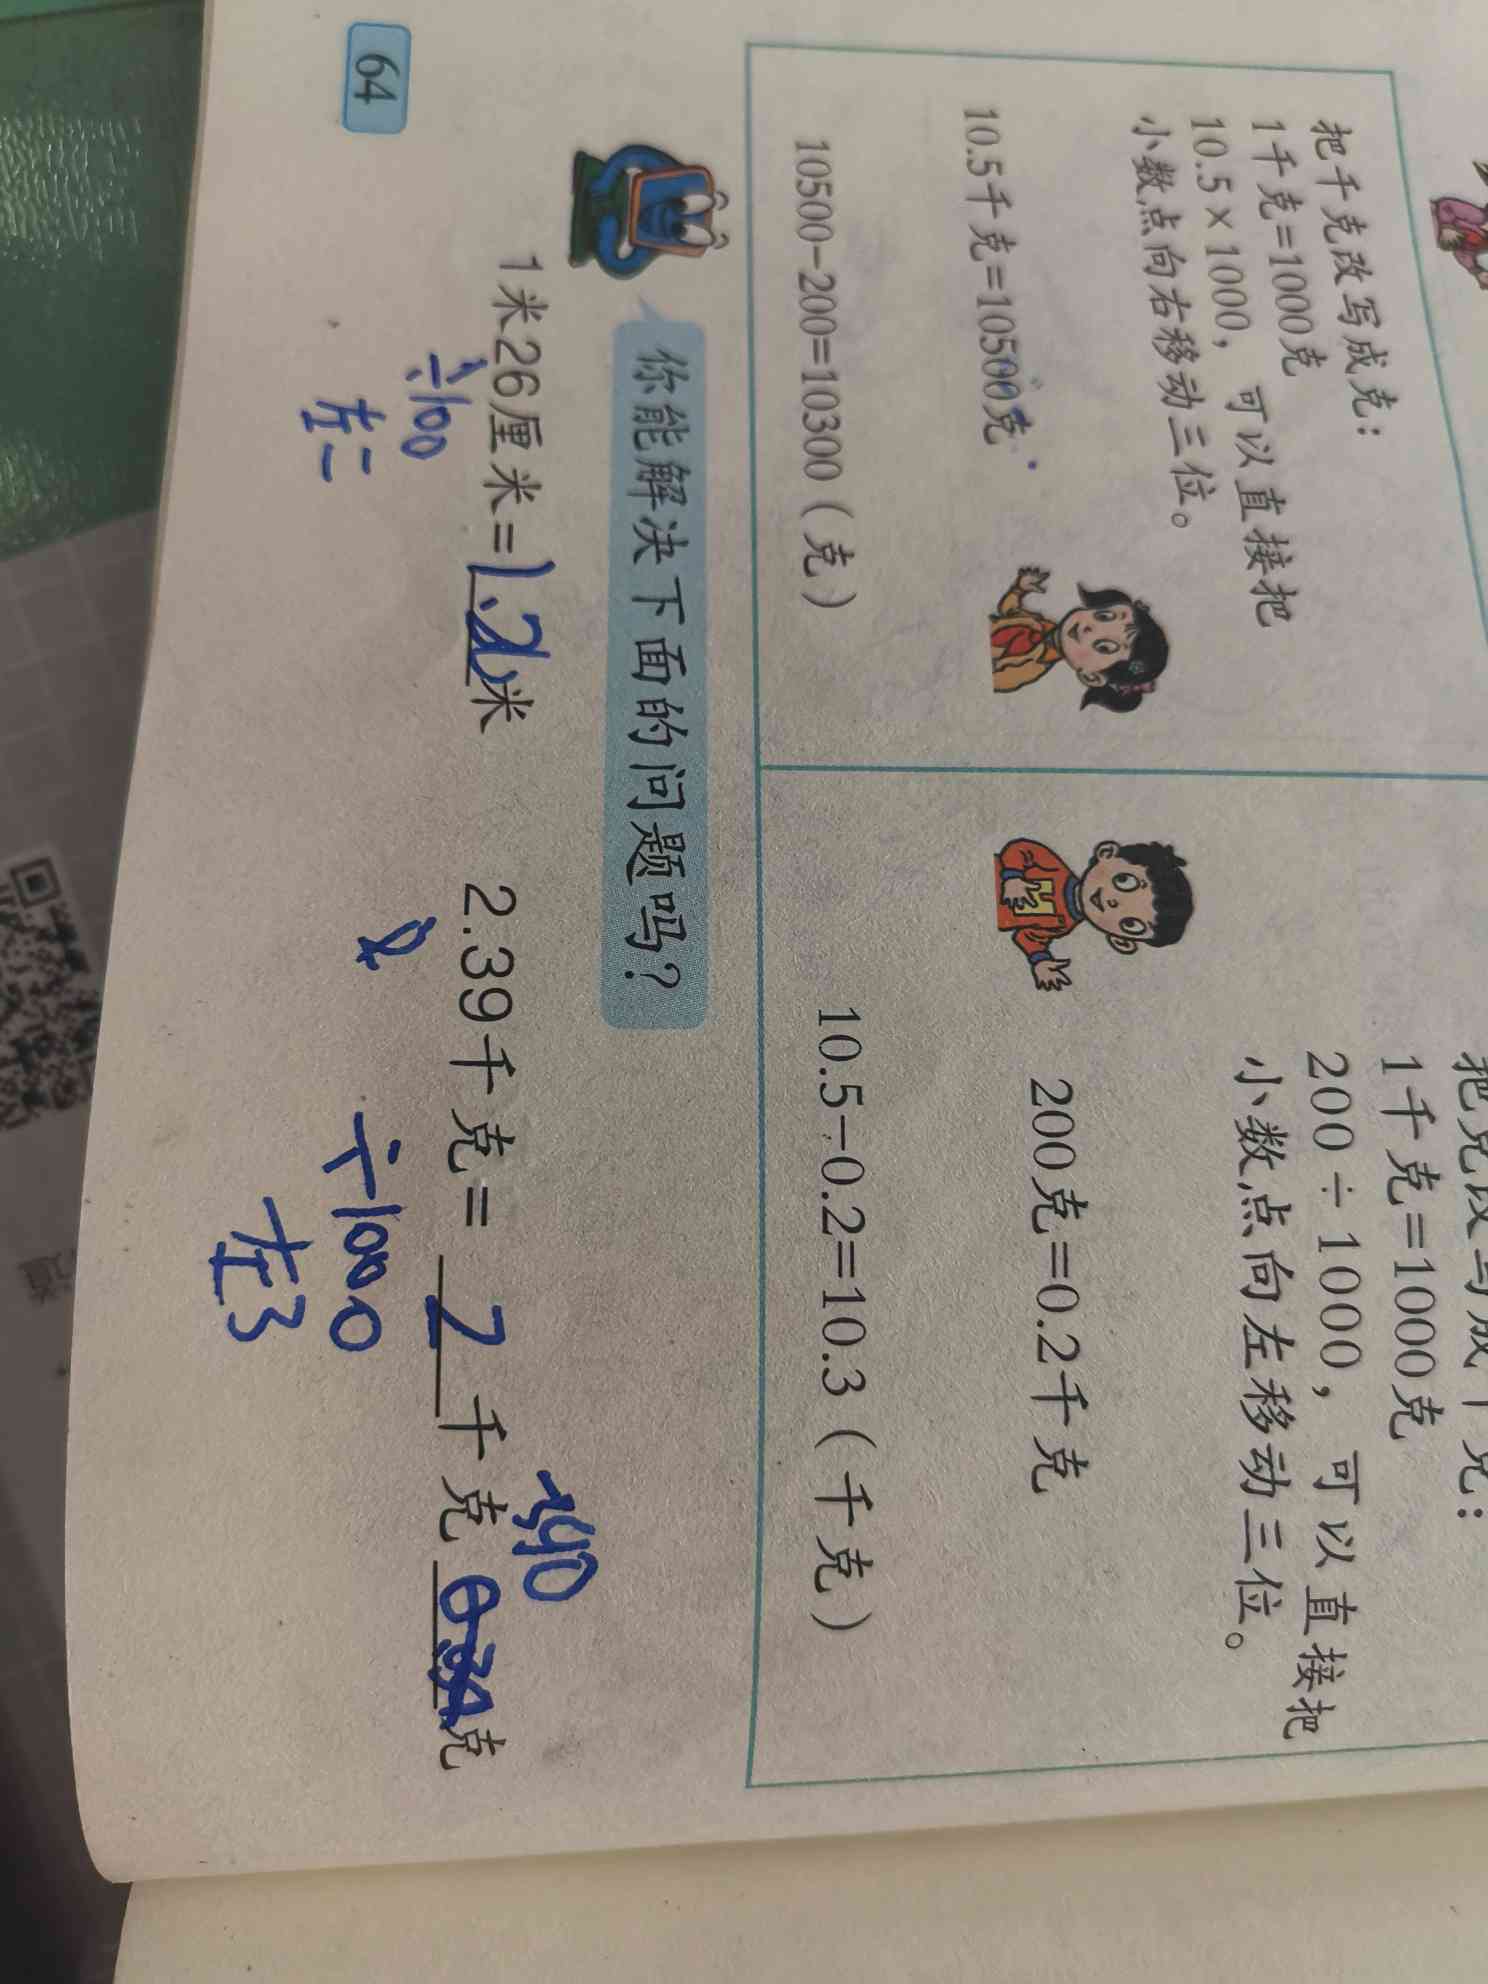 把千克改写成克：
1千克=1000克
10.5×1000，可以直接把
小数点向右移动三位。
10.5千克=10500克
10500-200=10300（克）
1千克=1000克
200÷1000，可以直接把
小数点向左移动三位。
200克=0.2千克
10.5-0.2=10.3（千克）
你能解决下面的问题吗？
1米26厘米=米
÷100
左二
2.39千克=2千克克
÷1000
左3
64